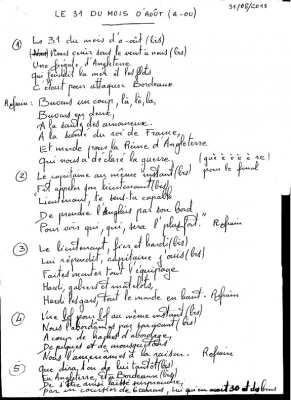 LE 31 DU MOIS D'AOÛT (A-OU)
31/08/2013
① Le 31 du mois d'a-oût (bis)
Nous vîmes venir sous le vent à nous (bis)
Une frégate d'Angleterre
Qui fendait la mer et les flots
C'était pour attaquer Bordeaux
Refrain : Buvons un coup, là, là, la,
Buvons en deux,
A la santé des amoureux
A la santé du roi de France,
Et merde pour la Reine d'Angleterre
Qui nous a déclaré la guerre.
(guè è è è è re!
pour le final
② Le capitaine au même instant (bis)
Fit appeler son lieutenant (bis)
"Lieutenant, te sens-tu capable
De prendre l'Anglais par son bord
Pour voir qui, qui, sera l'plus fort." Refrain
③ Le lieutenant, fier et hardi (bis)
Lui répondit, capitaine, oui (bis)
Faites monter tout l'équipage
Hardi, gabiers et matelots,
Hardi les gars, tout le monde en haut. Refrain
④ Vire lof pour lof au même instant (bis)
Nous l'abordâmes par
A coups de haches d'abordage,
De piques et de mousquetons
Nous l'amenâmes à la raison. Refrain
⑤ Que dira-t-on de lui tantôt (bis)
En Angleterre, et à Bordeaux (bis)
De s'être ainsi laissé surprendre,
par un corsaire de 6 canons, lui qu'en avait 30 et de bons